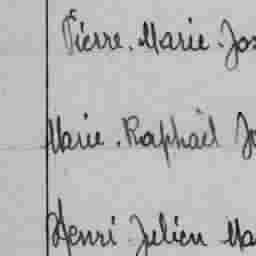 Pierre. Marie. Jos
Marie. Raphaël Jo
Henri. Julien Ma